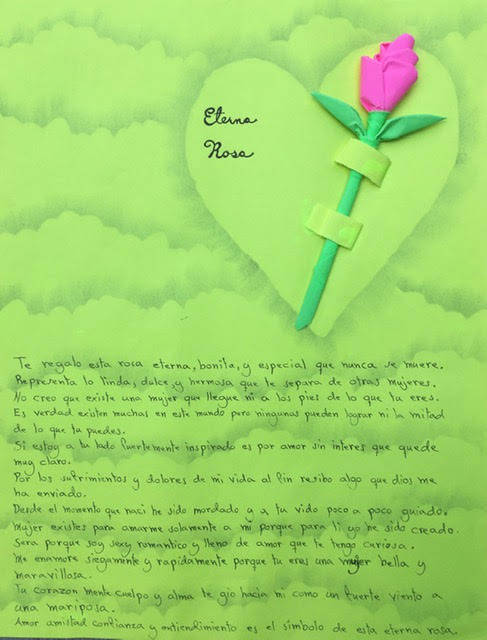 Eterna
Rosa
Te regalo esta rosa eterna, bonita, y especial que nunca se muere.
Representa lo linda, dulce, y hermosa que te separa de otras mujeres.
No creo que existe una mujer que llegue ni a los pies de lo que tu eres.
Es verdad existen muchas en este mundo pero ningunas pueden lograr ni la mitad
de lo que tu puedes.
Si estoy a tu lado fuertemente inspirado es por amor sin interes que quede
muy claro.
Por los sufrimientos y dolores de mi vida al fin resibo algo que dios me
ha enviado.
Desde el momento que naci he sido mordado y a tu vido poco a poco guiado.
Mujer existes para amarme solamente a mi porque para ti yo he sido creado.
Sera porque soy sexy romantico y lleno de amor que te tengo curiosa.
Me enamore siegamente y rapidamente porque tu eres una mujer bella y
maravillosa.
Tu corazon mente cuelpo y alma te gio hacia mi como un fuerte viento a
una mariposa.
Amor amistad confianza y entiendimiento es el símbolo de esta eterna rosa.